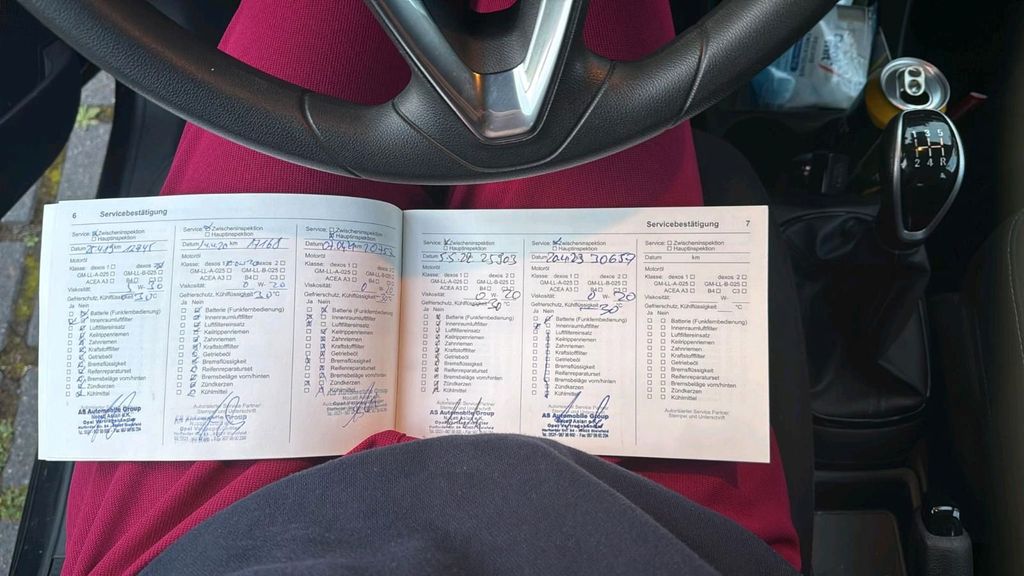 6 Servicebestätigung
Service: Zwischeninspektion
Hauptinspektion
Datum 25.4.19 km 12345
Motoröl
Klasse: dexos 1 dexos 2
GM-LL-A-025 GM-LL-B-025
ACEA A3 B4 C3
Viskosität: 0 W- 30
Gefrierschutz, Kühlflüssigkeit 30 °C
Ja Nein
Batterie (Funkfernbedienung)
Innenraumluftfilter
Luftfiltereinsatz
Keilrippenriemen
Zahnriemen
Kraftstofffilter
Getriebeöl
Bremsflüssigkeit
Reifenreparaturset
Bremsbeläge vorn/hinten
Zündkerzen
Kühlmittel
AS Automobile Group
Opel Vertragshändler
Service: Zwischeninspektion
Hauptinspektion
Datum km 17168
Motoröl
Klasse: dexos 2
GM-LL-A-025 GM-LL-B-025
ACEA A3 B4 C3
Viskosität: 0 W- 20
Gefrierschutz, Kühlflüssigkeit 30 °C
Ja Nein
Batterie (Funkfernbedienung)
Innenraumluftfilter
Luftfiltereinsatz
Keilrippenriemen
Zahnriemen
Kraftstofffilter
Getriebeöl
Bremsflüssigkeit
Reifenreparaturset
Bremsbeläge vorn/hinten
Zündkerzen
Kühlmittel
Autorisierter Service Partner
Stempel und Unterschrift
Service: Zwischeninspektion
Hauptinspektion
Datum
Motoröl
Klasse: dexos 1 dexos 2
GM-LL-A-025 GM-LL-B-025
ACEA A3 B4 C3
Viskosität: 0 W-
Gefrierschutz, Kühlflüssigkeit -30 °C
Ja Nein
Batterie (Funkfernbedienung)
Innenraumluftfilter
Luftfiltereinsatz
Keilrippenriemen
Zahnriemen
Kraftstofffilter
Getriebeöl
Bremsflüssigkeit
Reifenreparaturset
Bremsbeläge vorn/hinten
Zündkerzen
Kühlmittel
Servicebestätigung 7
Service: Zwischeninspektion
Hauptinspektion
Datum 5.5.22 25903
Motoröl
Klasse: dexos 1 dexos 2
GM-LL-A-025 GM-LL-B-025
ACEA A3 B4 C3
Viskosität: 0 W- 20
Gefrierschutz, Kühlflüssigkeit 30 °C
Ja Nein
Batterie (Funkfernbedienung)
Innenraumluftfilter
Luftfiltereinsatz
Keilrippenriemen
Zahnriemen
Kraftstofffilter
Getriebeöl
Bremsflüssigkeit
Reifenreparaturset
Bremsbeläge vorn/hinten
Zündkerzen
Kühlmittel
Autorisierter Service Partner
Stempel und Unterschrift
AS Automobile Group
Opel Vertragshändler
Service: Zwischeninspektion
Hauptinspektion
Datum 20.4.23 30657
Motoröl
Klasse: dexos 1 dexos 2
GM-LL-A-025 GM-LL-B-025
ACEA A3 B4 C3
Viskosität: 0 W- 20
Gefrierschutz, Kühlflüssigkeit 30 °C
Ja Nein
Batterie (Funkfernbedienung)
Innenraumluftfilter
Luftfiltereinsatz
Keilrippenriemen
Zahnriemen
Kraftstofffilter
Getriebeöl
Bremsflüssigkeit
Reifenreparaturset
Bremsbeläge vorn/hinten
Zündkerzen
Kühlmittel
AS Automobile Group
Opel Vertragshändler
Service: Zwischeninspektion
Hauptinspektion
Datum km
Motoröl
Klasse: dexos 1 dexos 2
GM-LL-A-025 GM-LL-B-025
ACEA A3 B4 C3
Viskosität: W-
Gefrierschutz, Kühlflüssigkeit °C
Ja Nein
Batterie (Funkfernbedienung)
Innenraumluftfilter
Luftfiltereinsatz
Keilrippenriemen
Zahnriemen
Kraftstofffilter
Getriebeöl
Bremsflüssigkeit
Reifenreparaturset
Bremsbeläge vorn/hinten
Zündkerzen
Kühlmittel
Autorisierter Service Partner
Stempel und Unterschrift
1 3 5
2 4 R